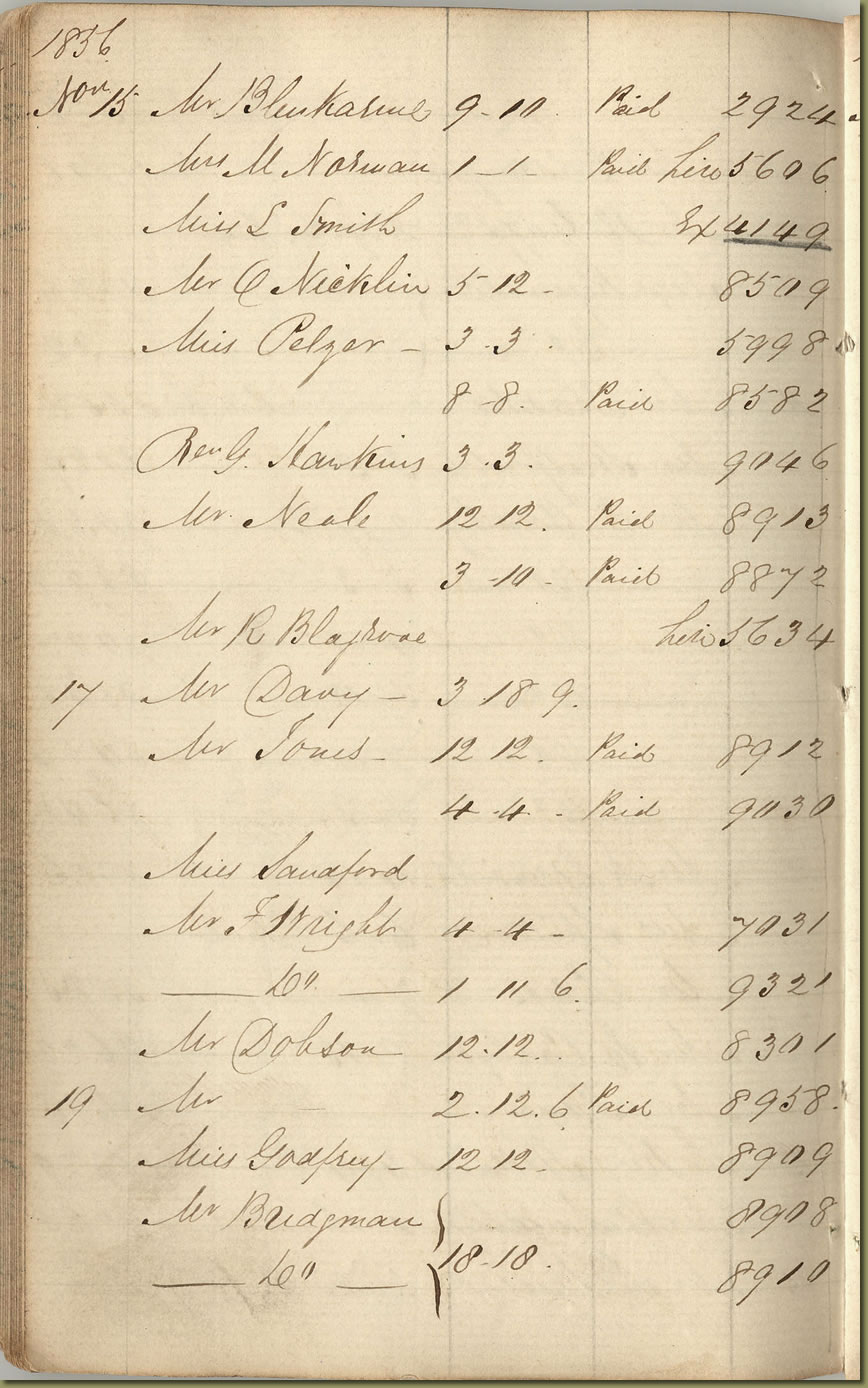 1856
Nov 15 Mr Blenkarne 9-10. Paid 2924
Mrs M Norman 1-1- Paid hire 5606
Miss L Smith Ex 4149
Mr C Nicklin 5 12 - 8509
Miss Pelzer - 3.3. 5998
8-8. Paid 8582
Rev G. Hawkins 3.3. 9046
Mr. Neale 12 12. Paid 8913
3-10- Paid 8872
Mr R Blagrove hire 5634
17 Mr Davy - 3 18 9.
Mr Jones - 12 12. Paid 8912
4-4- Paid 9030
Miss Sandford
Mr F Wright 4-4- 7031
— Do — 1 11 6. 9321
Mr Dobson 12.12. 8301
19 Mr 2.12.6 Paid 8958.
Miss Godfrey - 12 12. 8909
Mr Bridgman 8908
18-18.
— Do — 8910